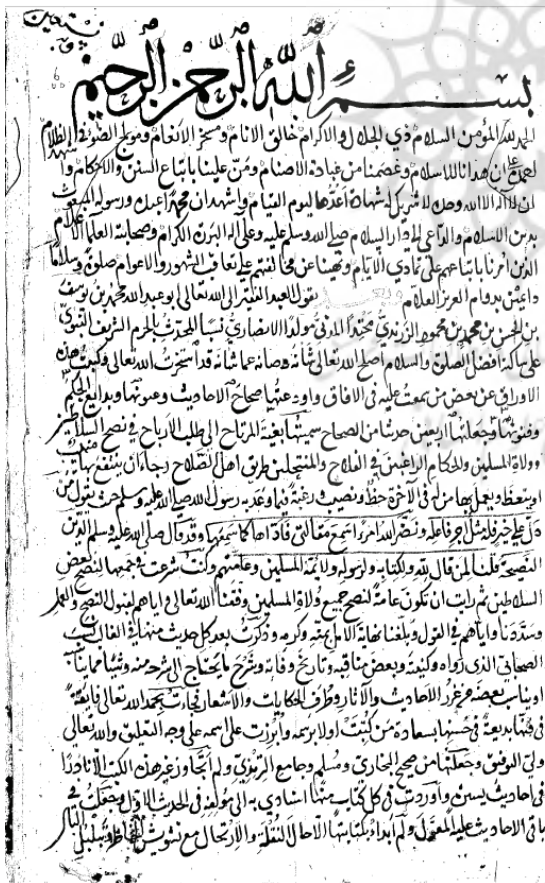 وبه نستعين
بســــم الله الرحمن الرحيم
الحمد لله المؤمن السلام ذي الجلال والاكرام خالق الانام ومسخر الانعام ومولج الضوء في الظلام
احمده على ان هدانا للاسلام وعصمنا من عبادة الاصنام ومن علينا باتباع السنن والاحكام واشهد
ان لا اله الا الله وحده لا شريك له شهادة اعدها ليوم القيام واشهد ان محمدا عبده ورسوله المبعوث
بدين الاسلام والداعي الى دار السلام صلى الله وسلم عليه وعلى آله البررة الكرام وصحابته العلماء الاعلام
الذين امرنا باتباعهم على تمادي الايام ونهينا عن مخالفتهم على تعاقب الشهور والاعوام صلوة وسلاما
دائمين بدوام العزيز العلام يقول العبد الفقير الى الله تعالى ابو عبد الله محمد بن يوسف
بن الحسن بن محمد بن محمود الزرندي محتدا المدني مولدا الانصاري نسبا المحدث بالحرم الشريف النبوي
على ساكنه افضل الصلوة والسلام اصلح الله تعالى شانه وصانه عما شانه قد استخرت الله تعالى وكتبت هذه
الاوراق عن بعض من سمعت عليه في الافاق واودعتها صحاح الاحاديث وعيونها وبدايع الحكم
وفنونها وجعلتها اربعين حديثا من الصحاح سميتها بغية المرتاح الى طلب الارباح في نصح السلاطين
وولاة المسلمين والحكام الراغبين في الفلاح والمنتحلين طريق اهل الصلاح رجاء ان ينتفع بها منهم
او يتعظ ويعمل بها من له في الآخرة حظ ونصيب رغبة فيما وعد به رسول الله صلى الله عليه وسلم حيث يقول من
دل على خير فله مثل اجر فاعله ونضر الله امرءا سمع مقالتي فاداها كما سمعها وقد قال صلى الله عليه وسلم الدين
النصيحة قلنا لمن قال لله ولكتابه ولرسوله ولائمة المسلمين وعامتهم وكنت شرعت في جمعها لنصح بعض
السلاطين ثم رايت ان تكون عامة لنصح جميع ولاة المسلمين وفقنا الله تعالى واياهم لقبول النصح والعمل
وسددنا واياهم في القول وبلغنا نهاية الامل بمنه وكرمه وذكرت بعد كل حديث منها في الغالب نسب
الصحابي الذي رواه وكنيته وبعض مناقبه وتاريخ وفاته وشرح ما يحتاج الى شرحه منه وشيئا مما يناسبه
او يناسب بعضه من غرر الاحاديث والاثار وطرف الحكايات والاشعار فجات بحمد الله تعالى فايقة
في فنها بديعة في حسنها بسعادة من كتبت اولا برسمه وابرزت على اسمه على وجه التعليق والله تعالى
ولي التوفيق وجعلتها من صحيح البخاري ومسلم وجامع الترمذي ولم اتجاوز غير هذه الكتب الا نادرا
في احاديث يسيرة واوردت في كل كتاب منها اسنادي به الى مؤلفه في الحديث الاول وجعلت في
باقي الاحاديث عليه المعول ولم ابدا بكتابتها الا حال النقلة والارتحال مع تشويش الخاطر وتبلبل